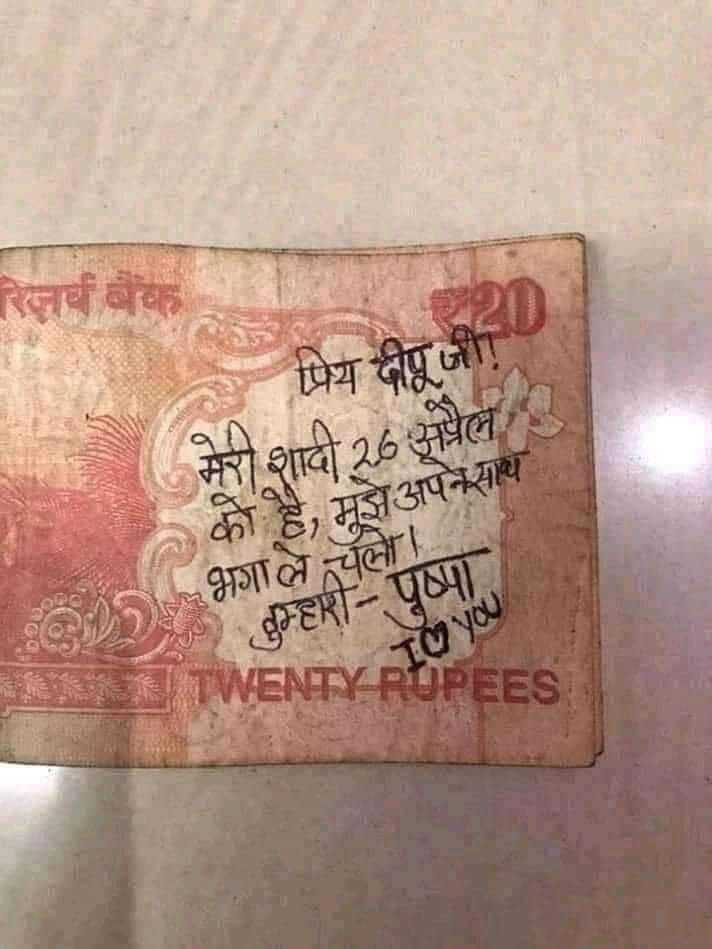 रिज़र्व बैंक
₹20
प्रिय दीपू जी!
मेरी शादी 26 अप्रैल
को है, मुझे अपने साथ
भगा ले चलो।
तुम्हारी - पुष्पा
I ♡ YOU
TWENTY RUPEES